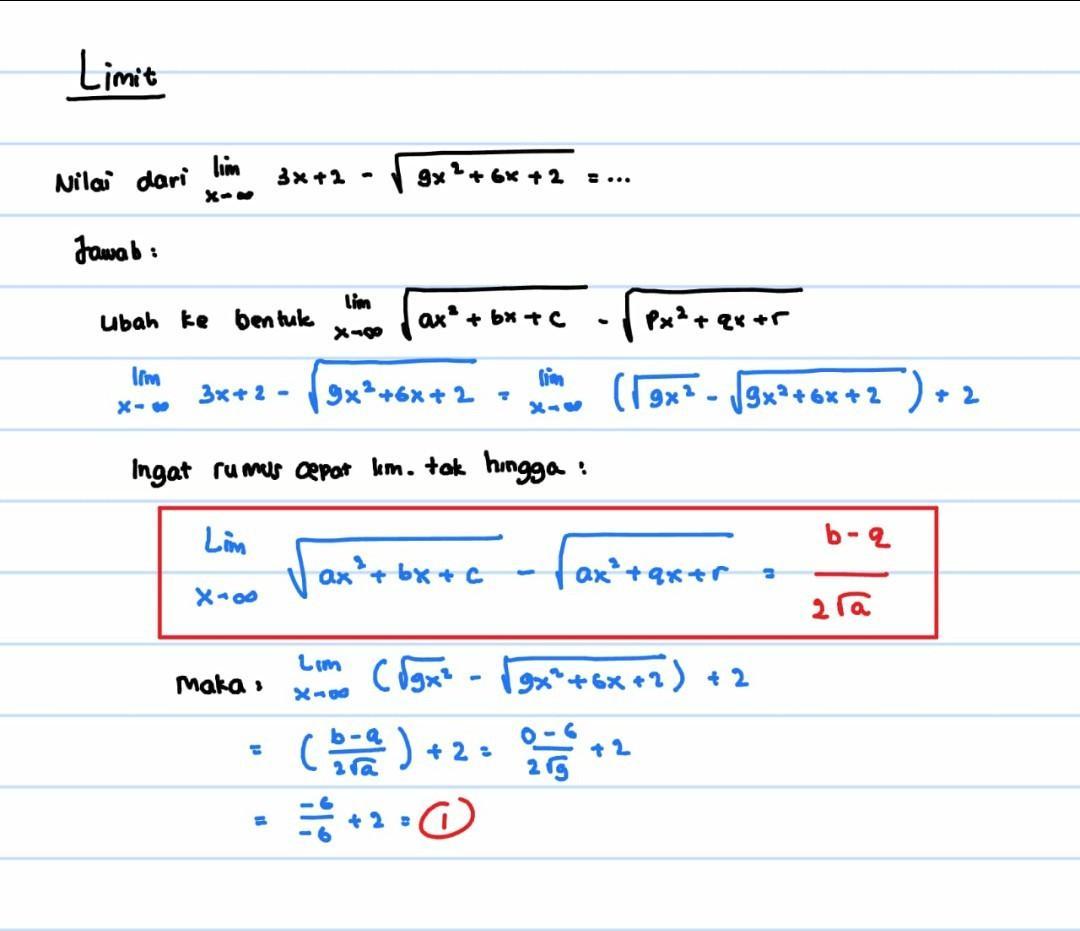 Limit
Nilai dari lim x→∞ 3x+2 - √(9x²+6x+2) = ...
Jawab:
Ubah ke bentuk lim x→∞ √(ax²+bx+c) - √(px²+qx+r)
lim x→∞ 3x+2 - √(9x²+6x+2) = lim x→∞ (√9x² - √(9x²+6x+2)) + 2
Ingat rumus cepat lim. tak hingga :
Lim x→∞ √(ax²+bx+c) - √(ax²+qx+r) = (b-q)/(2√a)
Maka, Lim x→∞ (√9x² - √(9x²+6x+2)) + 2
= ((b-q)/(2√a)) + 2 = (0-6)/(2√9) + 2
= -6/-6 + 2 = 1